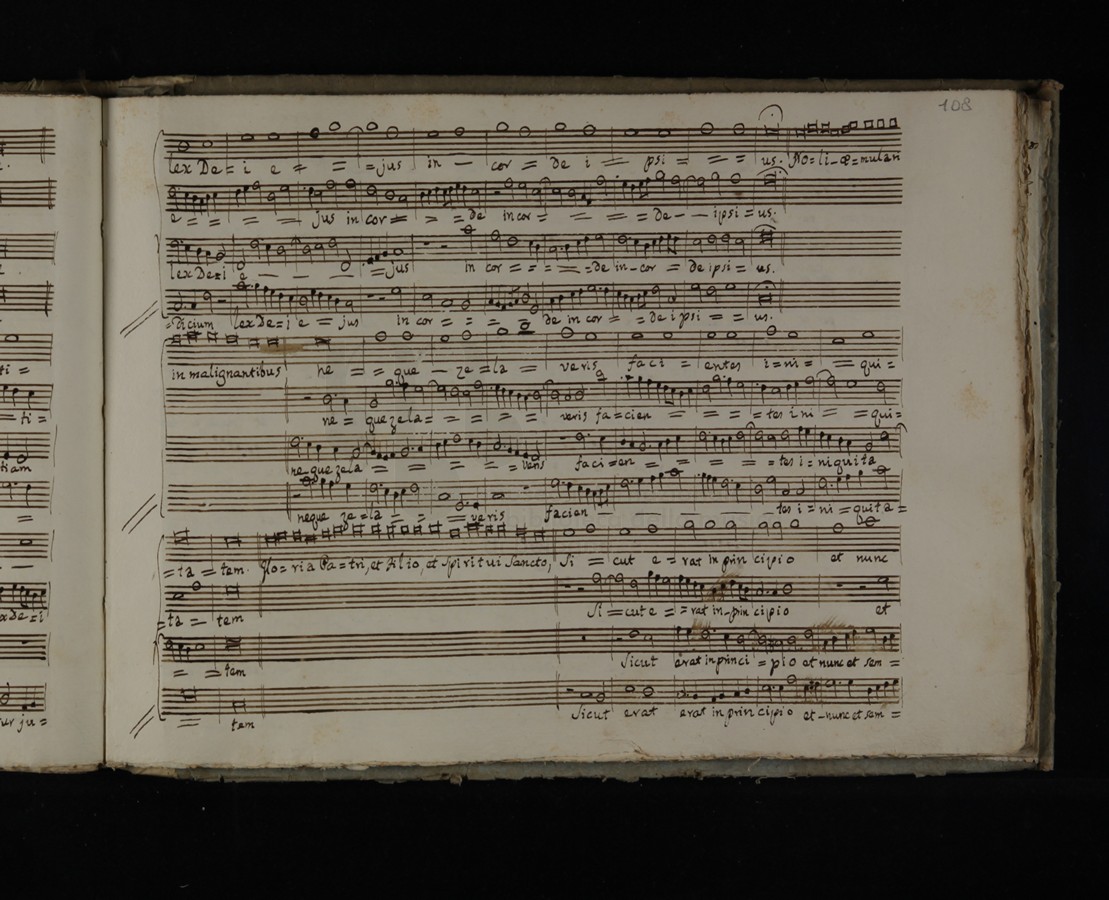 108
lex De = i e = = = jus in — cor = de i — psi = — = us. No = li - æ = mulari
e = = = — jus in cor = = = de in cor = = = = de — — ipsi = us.
lex De = i e — — — = jus in cor = = = — = de in - cor = de ipsi = us.
= dicium lex De = i e = jus in cor = = = = de in cor = = de i psi = = us.
ti = in malignantibus ne = = que — ze = la = veris faci = entes i = ni = = qui =
= ti = ne = que zela = = = = = veris fa = cien = = = = tes i ni = = qui =
tiam ne que zela = = = = = veris faci = en = = = = = tes i = niquita
= neque ze = la = = = veris facien — — — — tes i = ni = quita =
= ta = tem. Glo = ria Pa = tri, et Filio, et Spiritui Sancto, Si = cut e = rat in prin cipio et nunc
x de = i = ta = tem Si = cut e = = rat in - prin cipio et
= = tem Sicut erat in princi = pio et nunc et sem =
ur ju = = tem Sicut erat erat in prin cipio et - nunc et sem =